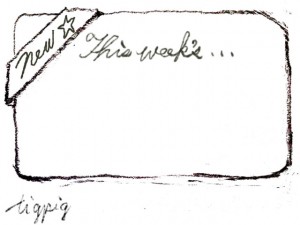 new ☆
This week's...
tigpig